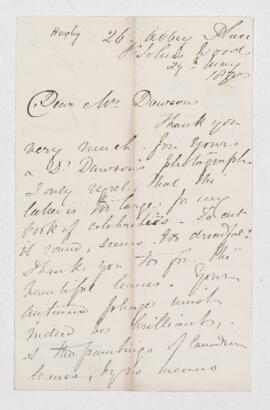 26 Abbey Place
St Johns Wood
29th May
Dear Mrs Dawson
Thank you
very much for yours
& Dr Dawson's photograph.
I only regret that the
latter is too large for my
book of celebrities. To cut
it round, seems too dreadful!
Thank you too for the
beautiful leaves. Your
autumn foliage must
indeed be brilliant,
& the paintings of Canadian
leaves, by no means